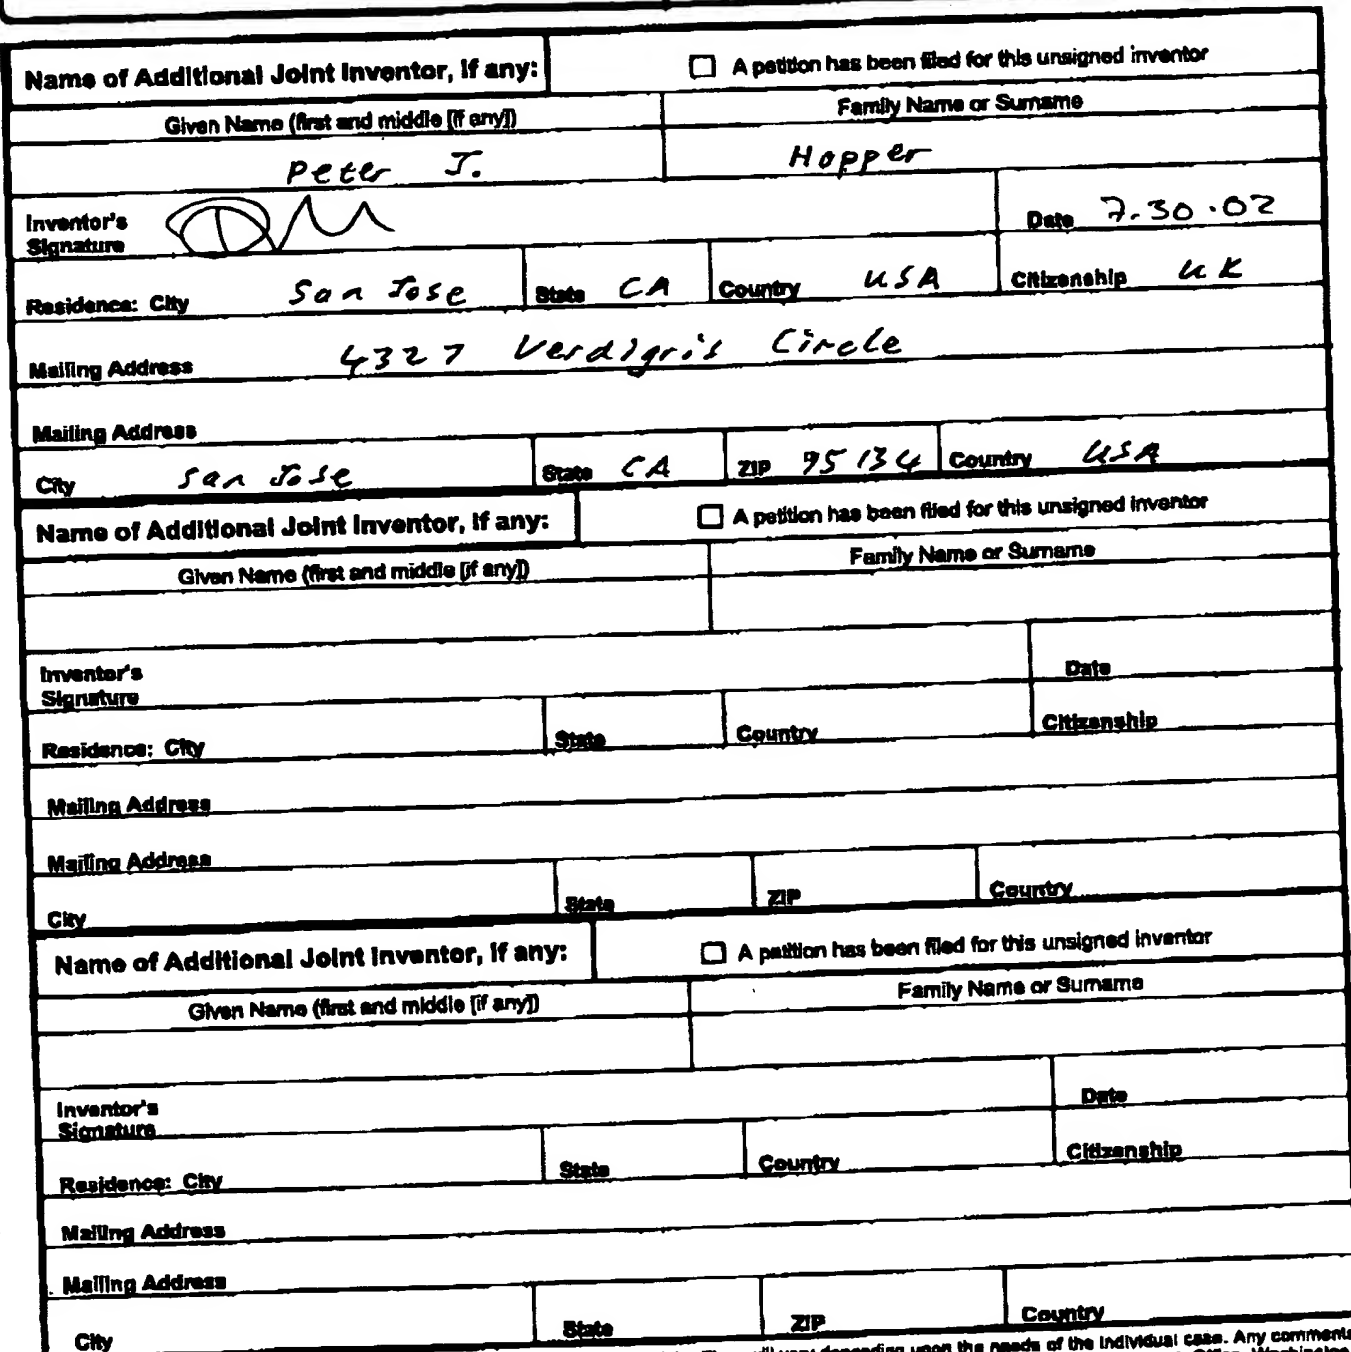 Name of Additional Joint Inventor, if any: A petition has been filed for this unsigned inventor
Given Name (first and middle [if any]) Family Name or Surname
Peter J. Hopper
Inventor's Signature Date 7.30.02
Residence: City San Jose State CA Country USA Citizenship UK
Mailing Address 4327 Verdigris Circle
Mailing Address
City San Jose State CA ZIP 95134 Country USA
Name of Additional Joint Inventor, if any: A petition has been filed for this unsigned inventor
Given Name (first and middle [if any]) Family Name or Surname
Inventor's Signature Date
Residence: City State Country Citizenship
Mailing Address
Mailing Address
City State ZIP Country
Name of Additional Joint Inventor, if any: A petition has been filed for this unsigned inventor
Given Name (first and middle [if any]) Family Name or Surname
Inventor's Signature Date
Residence: City State Country Citizenship
Mailing Address
Mailing Address
City State ZIP Country
depending upon the needs of the individual case. Any comments